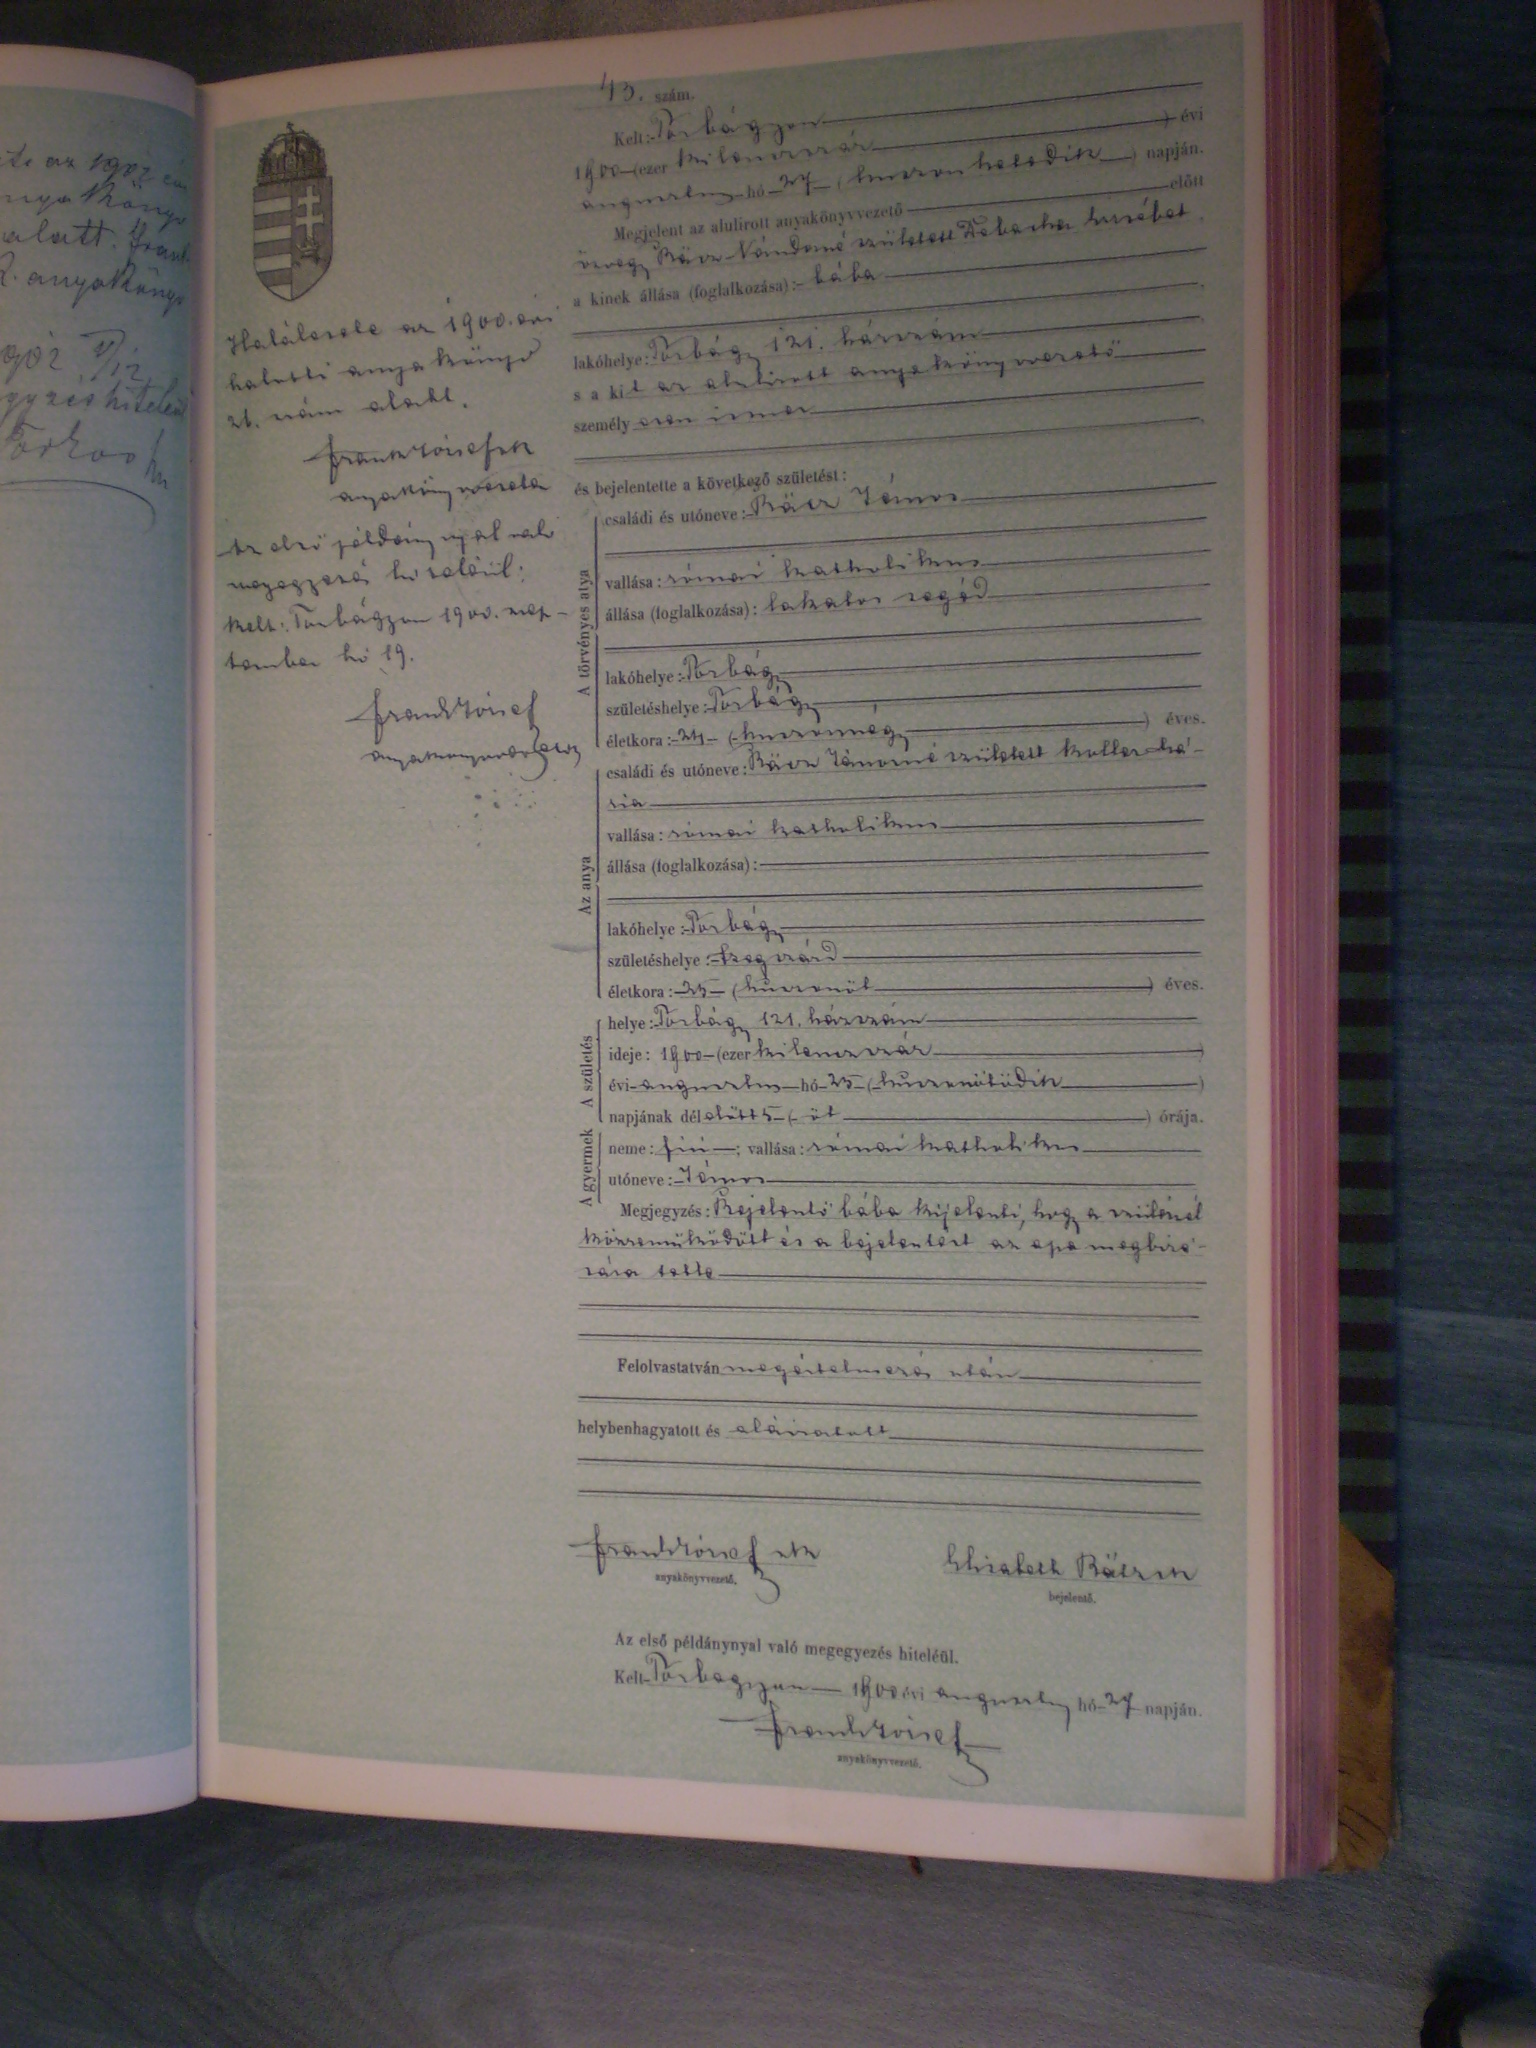 te az 1902 évi
nya könyv
alatt. Frank
anyakönyv
902 V/12
gyzés hiteléül
43. szám.
Kelt: Torbágyon
1900 (ezer kilenczszáz ) évi
augusztus hó 27 (huszonhetedik ) napján.
Megjelent az alulirott anyakönyvvezető előtt
özvegy Rácz Nándorné született Erzsébet
a kinek állása (foglalkozása): bába
lakóhelye: Torbágy 121. házszám
s a kit az alulirott anyakönyvvezető
személyesen ismer
és bejelentette a következő születést:
A törvényes atya
családi és utóneve: Rácz János
vallása: római katholikus
állása (foglalkozása): lakatos segéd
lakóhelye: Torbágy
születéshelye: Torbágy
életkora: 24 (huszonnégy ) éves.
Az anya
családi és utóneve: Rácz Jánosné született Koller Má-
ria
vallása: római katholikus
állása (foglalkozása):
lakóhelye: Torbágy
születéshelye: Szegszárd
életkora: 25 (huszonöt ) éves.
A születés
helye: Torbágy 121. házszám
ideje: 1900 (ezer kilenczszáz )
évi augusztus hó 25 (huszonötödik )
napjának délelőtt 5 (öt ) órája.
A gyermek
neme: fiú ; vallása: római katholikus
utóneve: János
Megjegyzés: Bejelentő bába kijelenti, hogy a szülésnél
közreműködött és a bejelentést az apa megbizá-
sára tette
Felolvastatván megértelmezés után
helybenhagyatott és aláiratott
Frank József
anyakönyvvezető.
Elisabeth Rätz
bejelentő.
Az első példánynyal való megegyezés hiteléül.
Kelt Torbágyon 1900 évi augusztus hó 27 napján.
Frank József
anyakönyvvezető.
Halálesete az 1900. évi
halotti anyakönyv
21. szám alatt.
Frank József
anyakönyvvezető
Az első példánynyal való
megegyezés hiteléül:
Kelt: Torbágyon 1900. szep-
tember hó 19.
Frank József
anyakönyvvezető